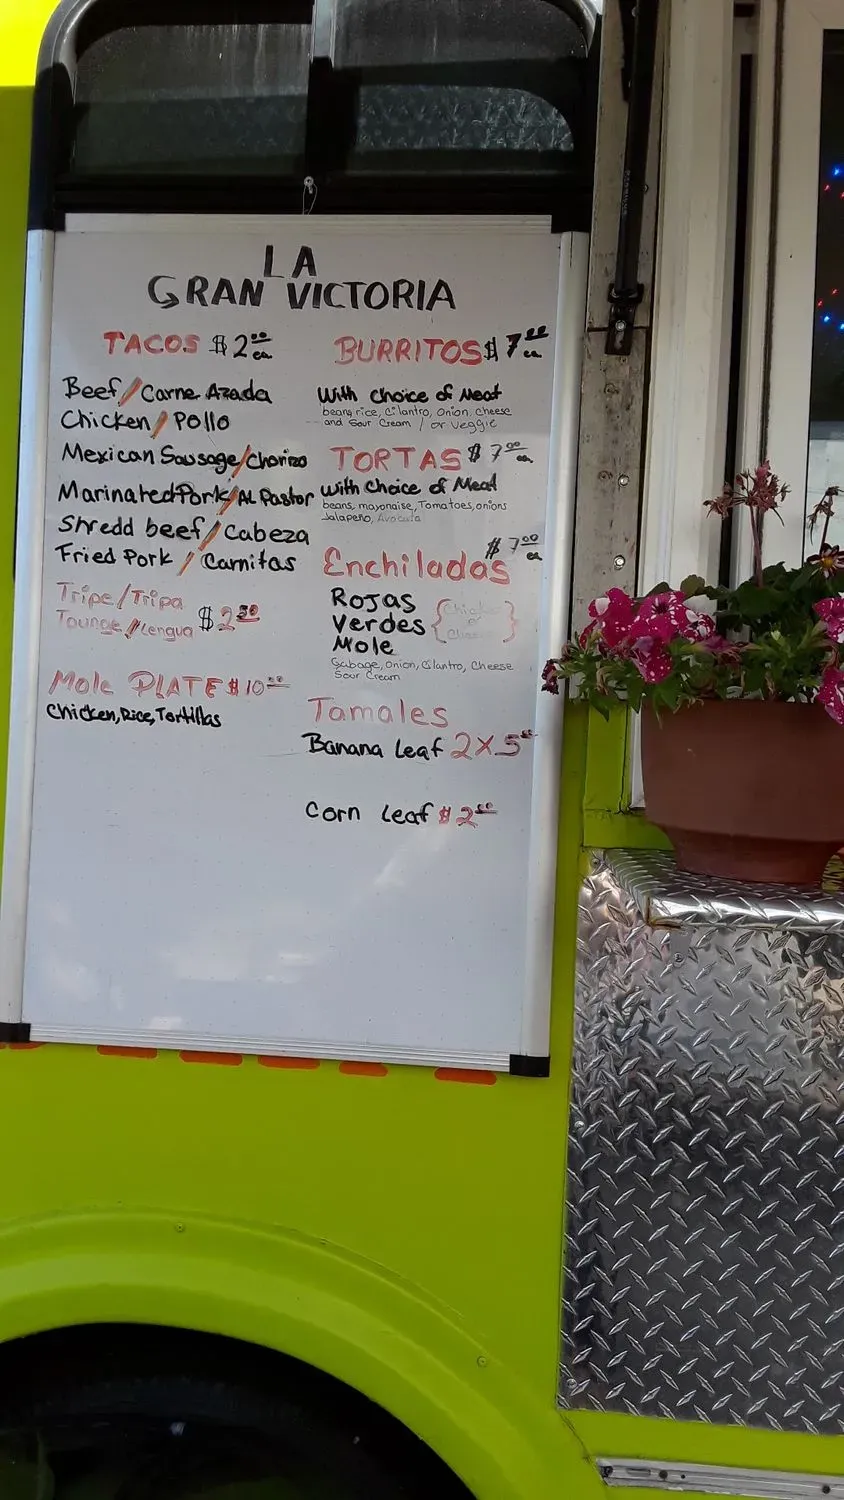 LA
GRAN VICTORIA
TACOS $2.00 ea
Beef/Carne Azada
Chicken/Pollo
Mexican Sausage/Chorizo
Marinated Pork/AL Pastor
Shredd beef/Cabeza
Fried Pork/Carnitas
Tripe/Tripa
Tounge/Lengua $2.50
Mole PLATE $10.00
Chicken, Rice, Tortillas
BURRITOS $7.00 ea
With Choice of Meat
beans, rice, Cilantro, Onion, Cheese
and Sour Cream / or veggie
TORTAS $7.00 ea
With Choice of Meat
beans, mayonaise, Tomatoes, onions
Jalapeño, Avocado
$7.00 ea
Enchiladas
Rojas
Verdes
Mole
{Chicken
or
Cheese}
Cabage, Onion, Cilantro, Cheese
Sour Cream
Tamales
Banana Leaf 2X5.00
Corn Leaf $2.00